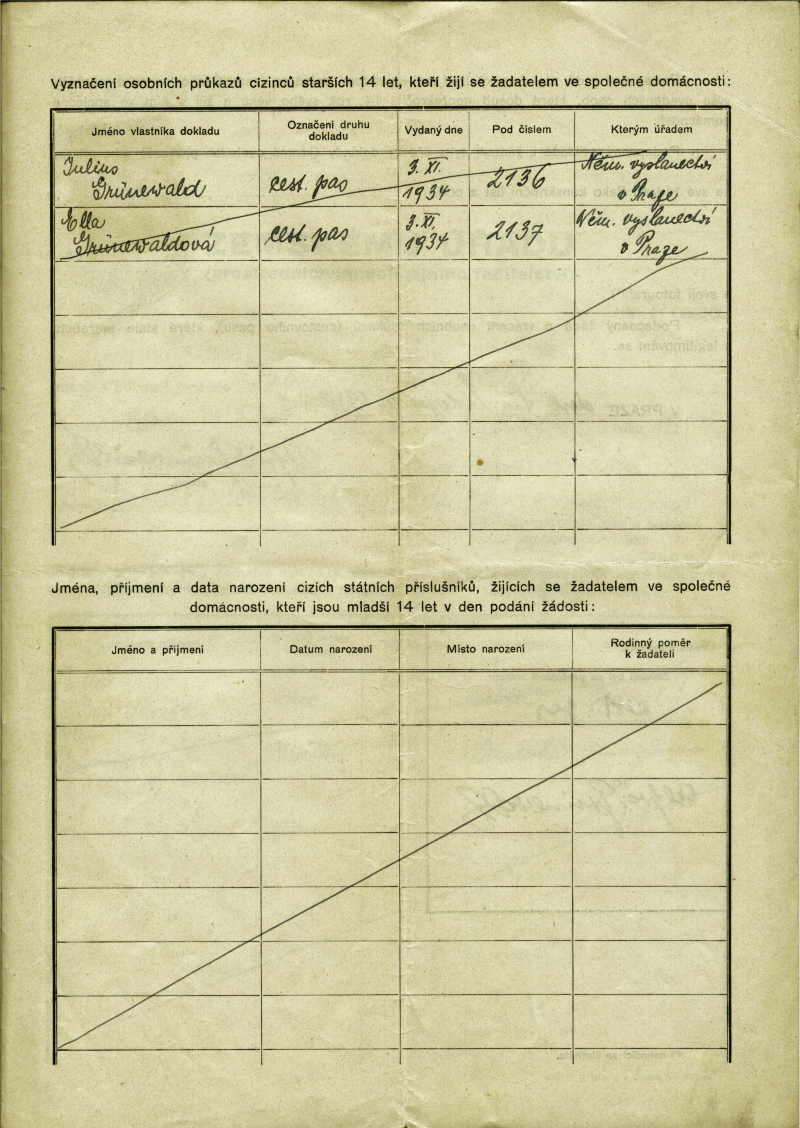 Vyznačení osobních průkazů cizinců starších 14 let, kteří žijí se žadatelem ve společné domácnosti:
Jméno vlastníka dokladu
Označení druhu
dokladu
Vydaný dne
Pod číslem
Kterým úřadem
Julius
Grünewald
cest. pas
3. XI.
1934
2136
Něm. vyslanectví
v Praze
Ella
Grünewaldová
cest. pas
3. XI.
1934
2137
Něm. vyslanectví
v Praze
Jména, příjmení a data narození cizích státních příslušníků, žijících se žadatelem ve společné
domácnosti, kteří jsou mladší 14 let v den podání žádosti:
Jméno a příjmení
Datum narození
Místo narození
Rodinný poměr
k žadateli